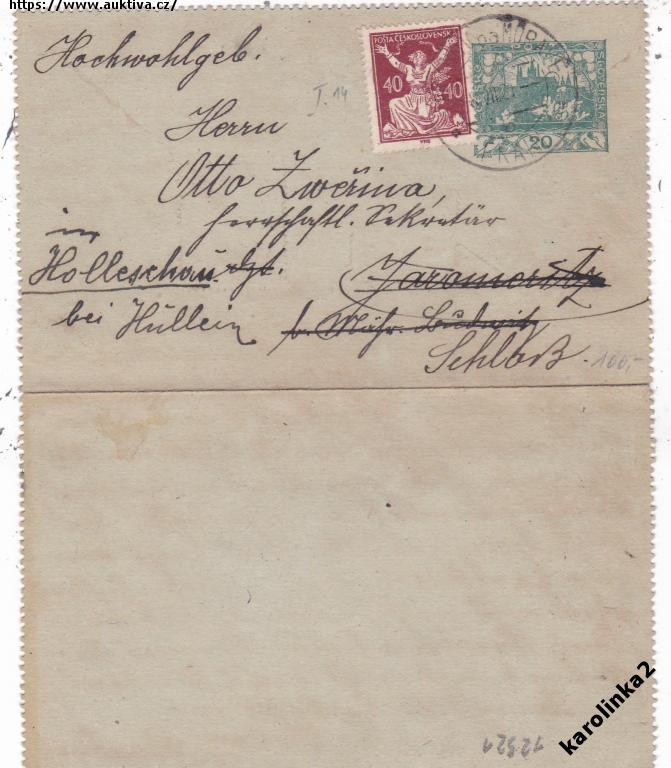 https://www.auktiva.cz/
Hochwohlgeb.
POŠTA ČESKOSLOVENSKÁ
40 40
20
I. 14
Herrn
Otto Zweřina,
herrschaftl. Sekretär
in
Holleschau dzt. Jaromeritz
bei Hüllein b. Mähr. Budwitz
Schloß.
100,-
12321
karolinka2